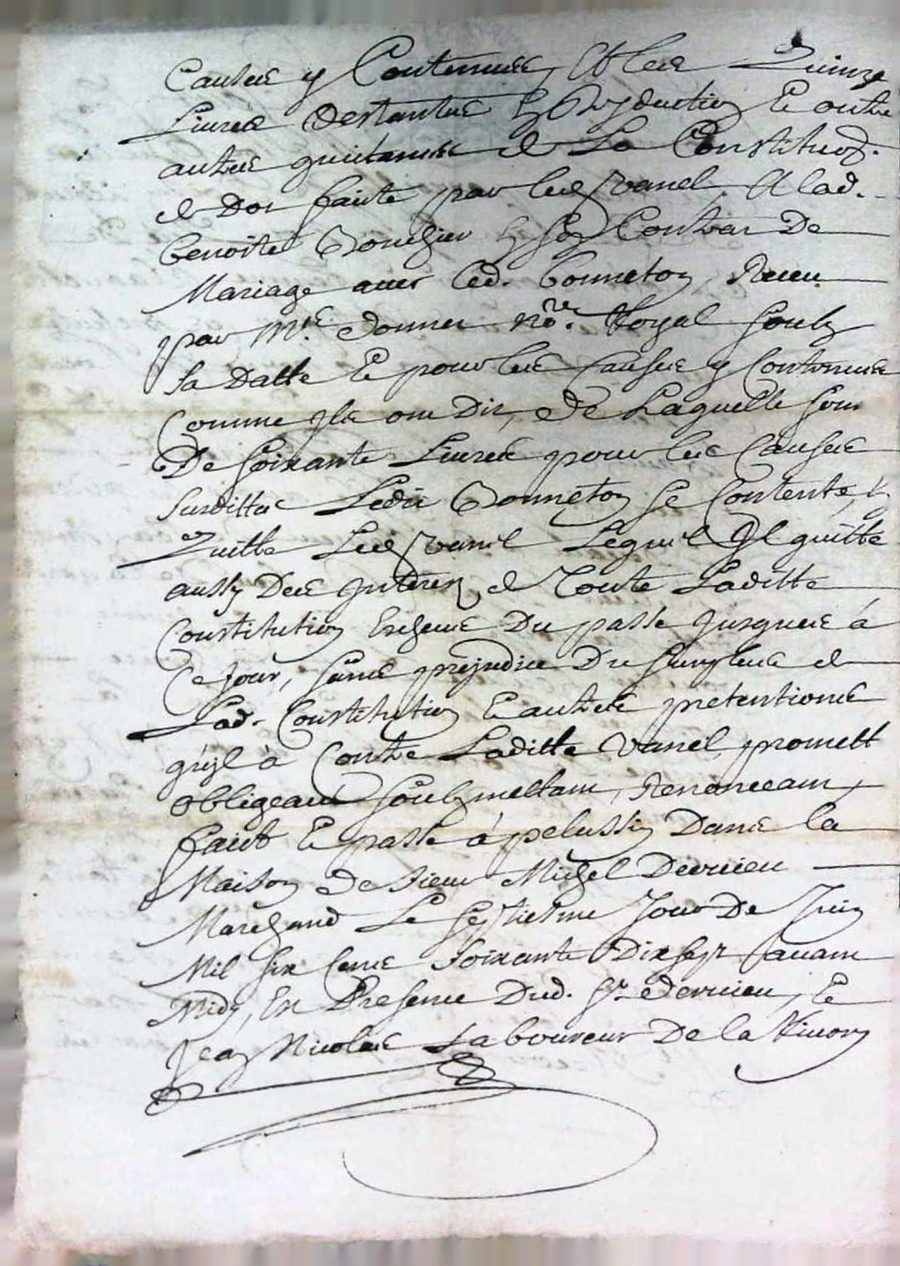 Causes y Contenues, Et les Quinze
Livres Restantes En Deduction Et outre
autres quittances de La Constituon.
de Dot faitte par led. vanel A lad.
benoite En son Contrat De
Mariage avec led. bonneton, Receu
par Me. donnet nore. Royal soubz
sa Datte Et pour les Causes y Contenues
Comme Ils ont Dit, de Laquelle som
De soixante Livres pour les Causes
Susdittes Ledit Bonneton se Contente,
Quitte Led. vanel Lequel Il quitte
aussy Des Interest de Toute Laditte
Constitution Escheus Du passe Jusques à
Ce Jour, sans prejudice Du surplus de
Lad. Constitution Et autres pretentions
qu'il à Contre Laditte Vanel, promett
Obligeant soubzmettant, Renonceant,
faict Et passé à pelussin Dans la
Maison de sieur Michel Dervieu
Marchand Le septiesme Jour De Juin
Mil six Cens soixante Dix sept avant
Midy, En Presence Dud. sr. dervieu, Et
Jean Nicolas Laboureur De la